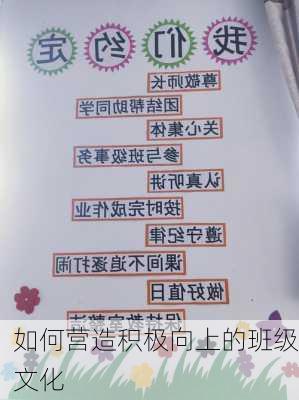 我们约定
尊敬师长
团结帮助同学
关心集体
参与班级事务
认真听讲
按时完成作业
遵守纪律
课间不追逐打闹
做好值日
保持教室整洁
如何营造积极向上的班级
文化